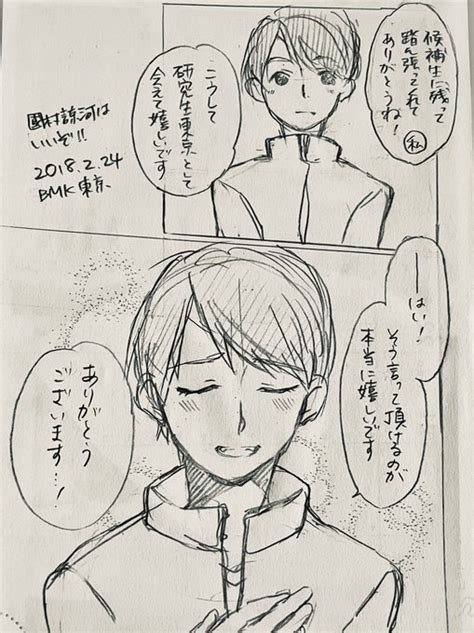 候補生に残って
踏ん張ってくれて
ありがとうね!
私
こうして
研究生東京として
会えて嬉しいです
國村諒河は
いいぞ!!
2018.2.24
BMK東京
──はい!
そう言って頂けるのが
本当に嬉しいです
ありがとう
ございます…!